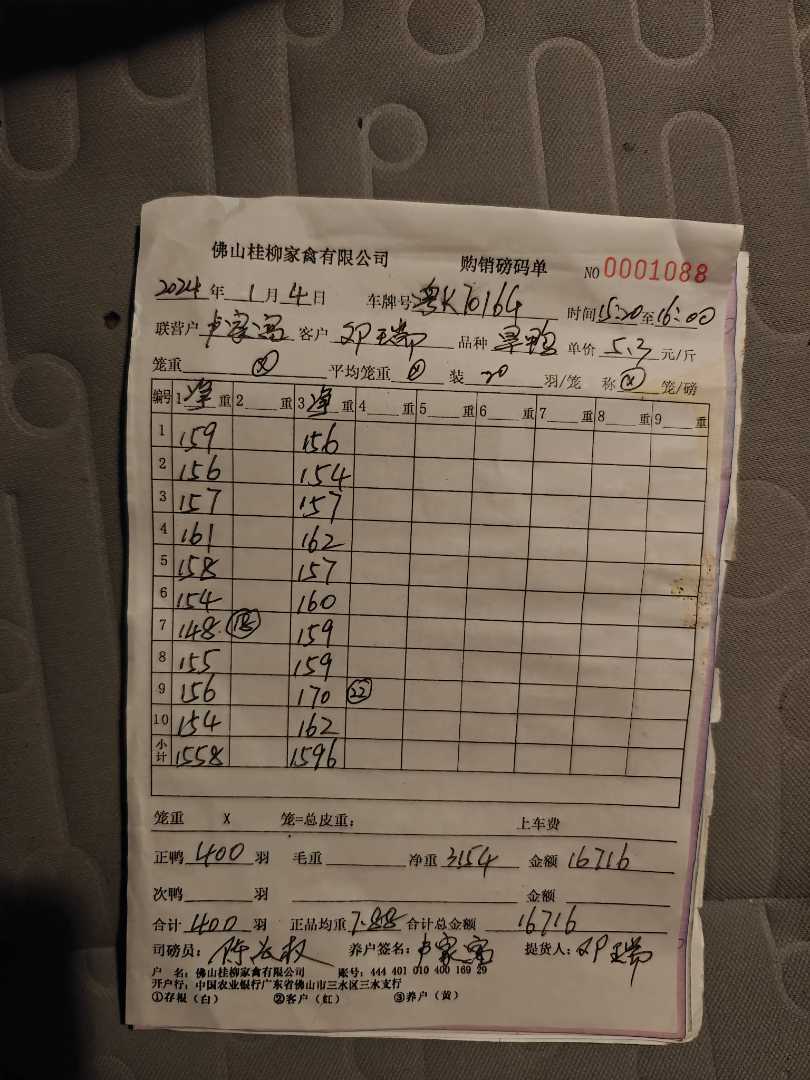 佛山桂柳家禽有限公司 购销磅码单 NO 0001088
2024年 1月 4日 车牌号 粤K70164 时间 15:20至16:00
联营户 卢家富 客户 邓瑞 品种 单价 5.3 元/斤
笼重 平均笼重 装 20 羽/笼 称 笼/磅
编号 1 净 重 2 重 3 净 重 4 重 5 重 6 重 7 重 8 重 9 重
1 159 156
2 156 154
3 157 157
4 161 162
5 158 157
6 154 160
7 148 18 159
8 155 159
9 156 170 22
10 154 162
小计 1558 1596
笼重 X 笼=总皮重: 上车费
正鸭 400 羽 毛重 净重 3154 金额 16716
次鸭 羽 金额
合计 400 羽 正品均重 7.88 合计总金额 16716
司磅员: 陈 权 养户签名: 卢家富 提货人: 邓瑞
户 名: 佛山桂柳家禽有限公司 账号: 444 401 010 400 169 29
开户行: 中国农业银行广东省佛山市三水区三水支行
①存根(白) ②客户(红) ③养户(黄)